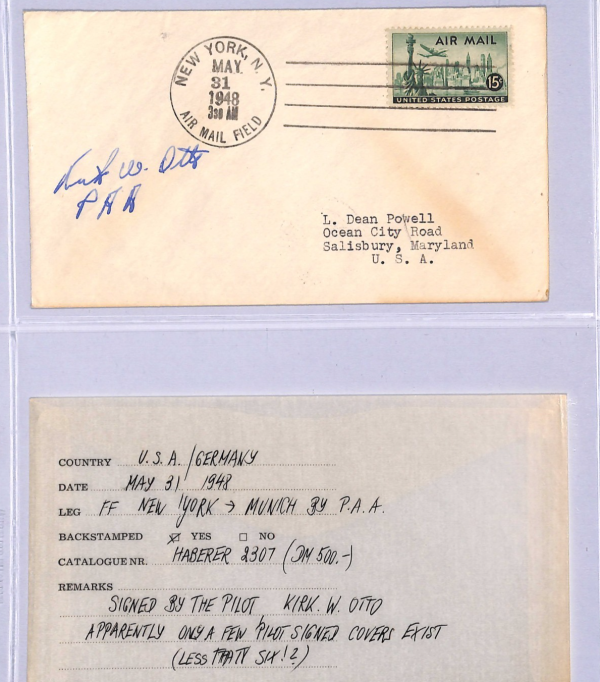 NEW YORK, N. Y.
MAY
31
1948
3 30 AM
AIR MAIL FIELD
AIR MAIL
15¢
UNITED STATES POSTAGE
Kirk W. Otto
P A A
L. Dean Powell
Ocean City Road
Salisbury, Maryland
U. S. A.
COUNTRY U.S.A. / GERMANY
DATE MAY 31 1948
LEG FF NEW YORK → MUNICH BY P.A.A.
BACKSTAMPED ☒ YES ☐ NO
CATALOGUE NR. HABERER 2307 (DM 500,-)
REMARKS
SIGNED BY THE PILOT, KIRK. W. OTTO
APPARENTLY ONLY A FEW PILOT SIGNED COVERS EXIST
(LESS THAN SIX!?)